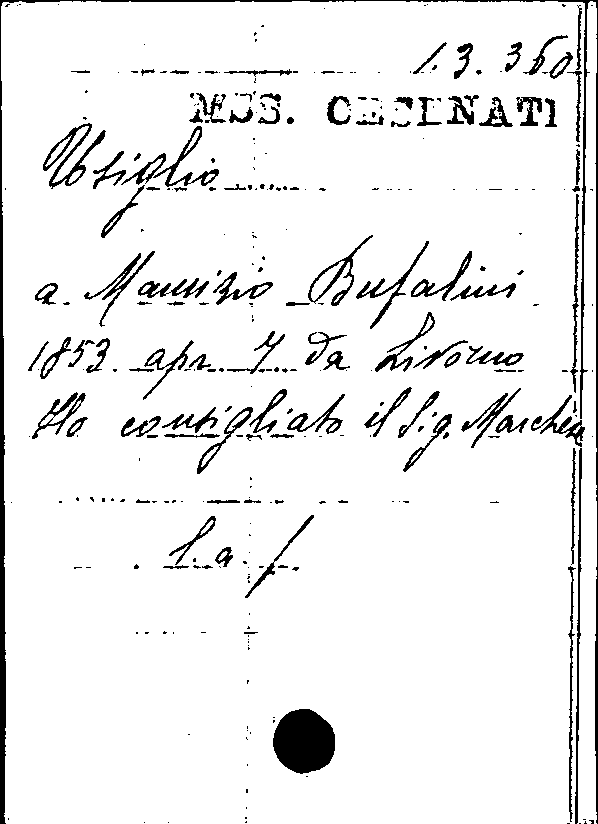 1.3.360
MSS. CESENATI
Usiglio
a Maurizio Bufalini
1853 apr. 7 da Livorno
Ho consigliato il Sig. Marchese
l. a. /